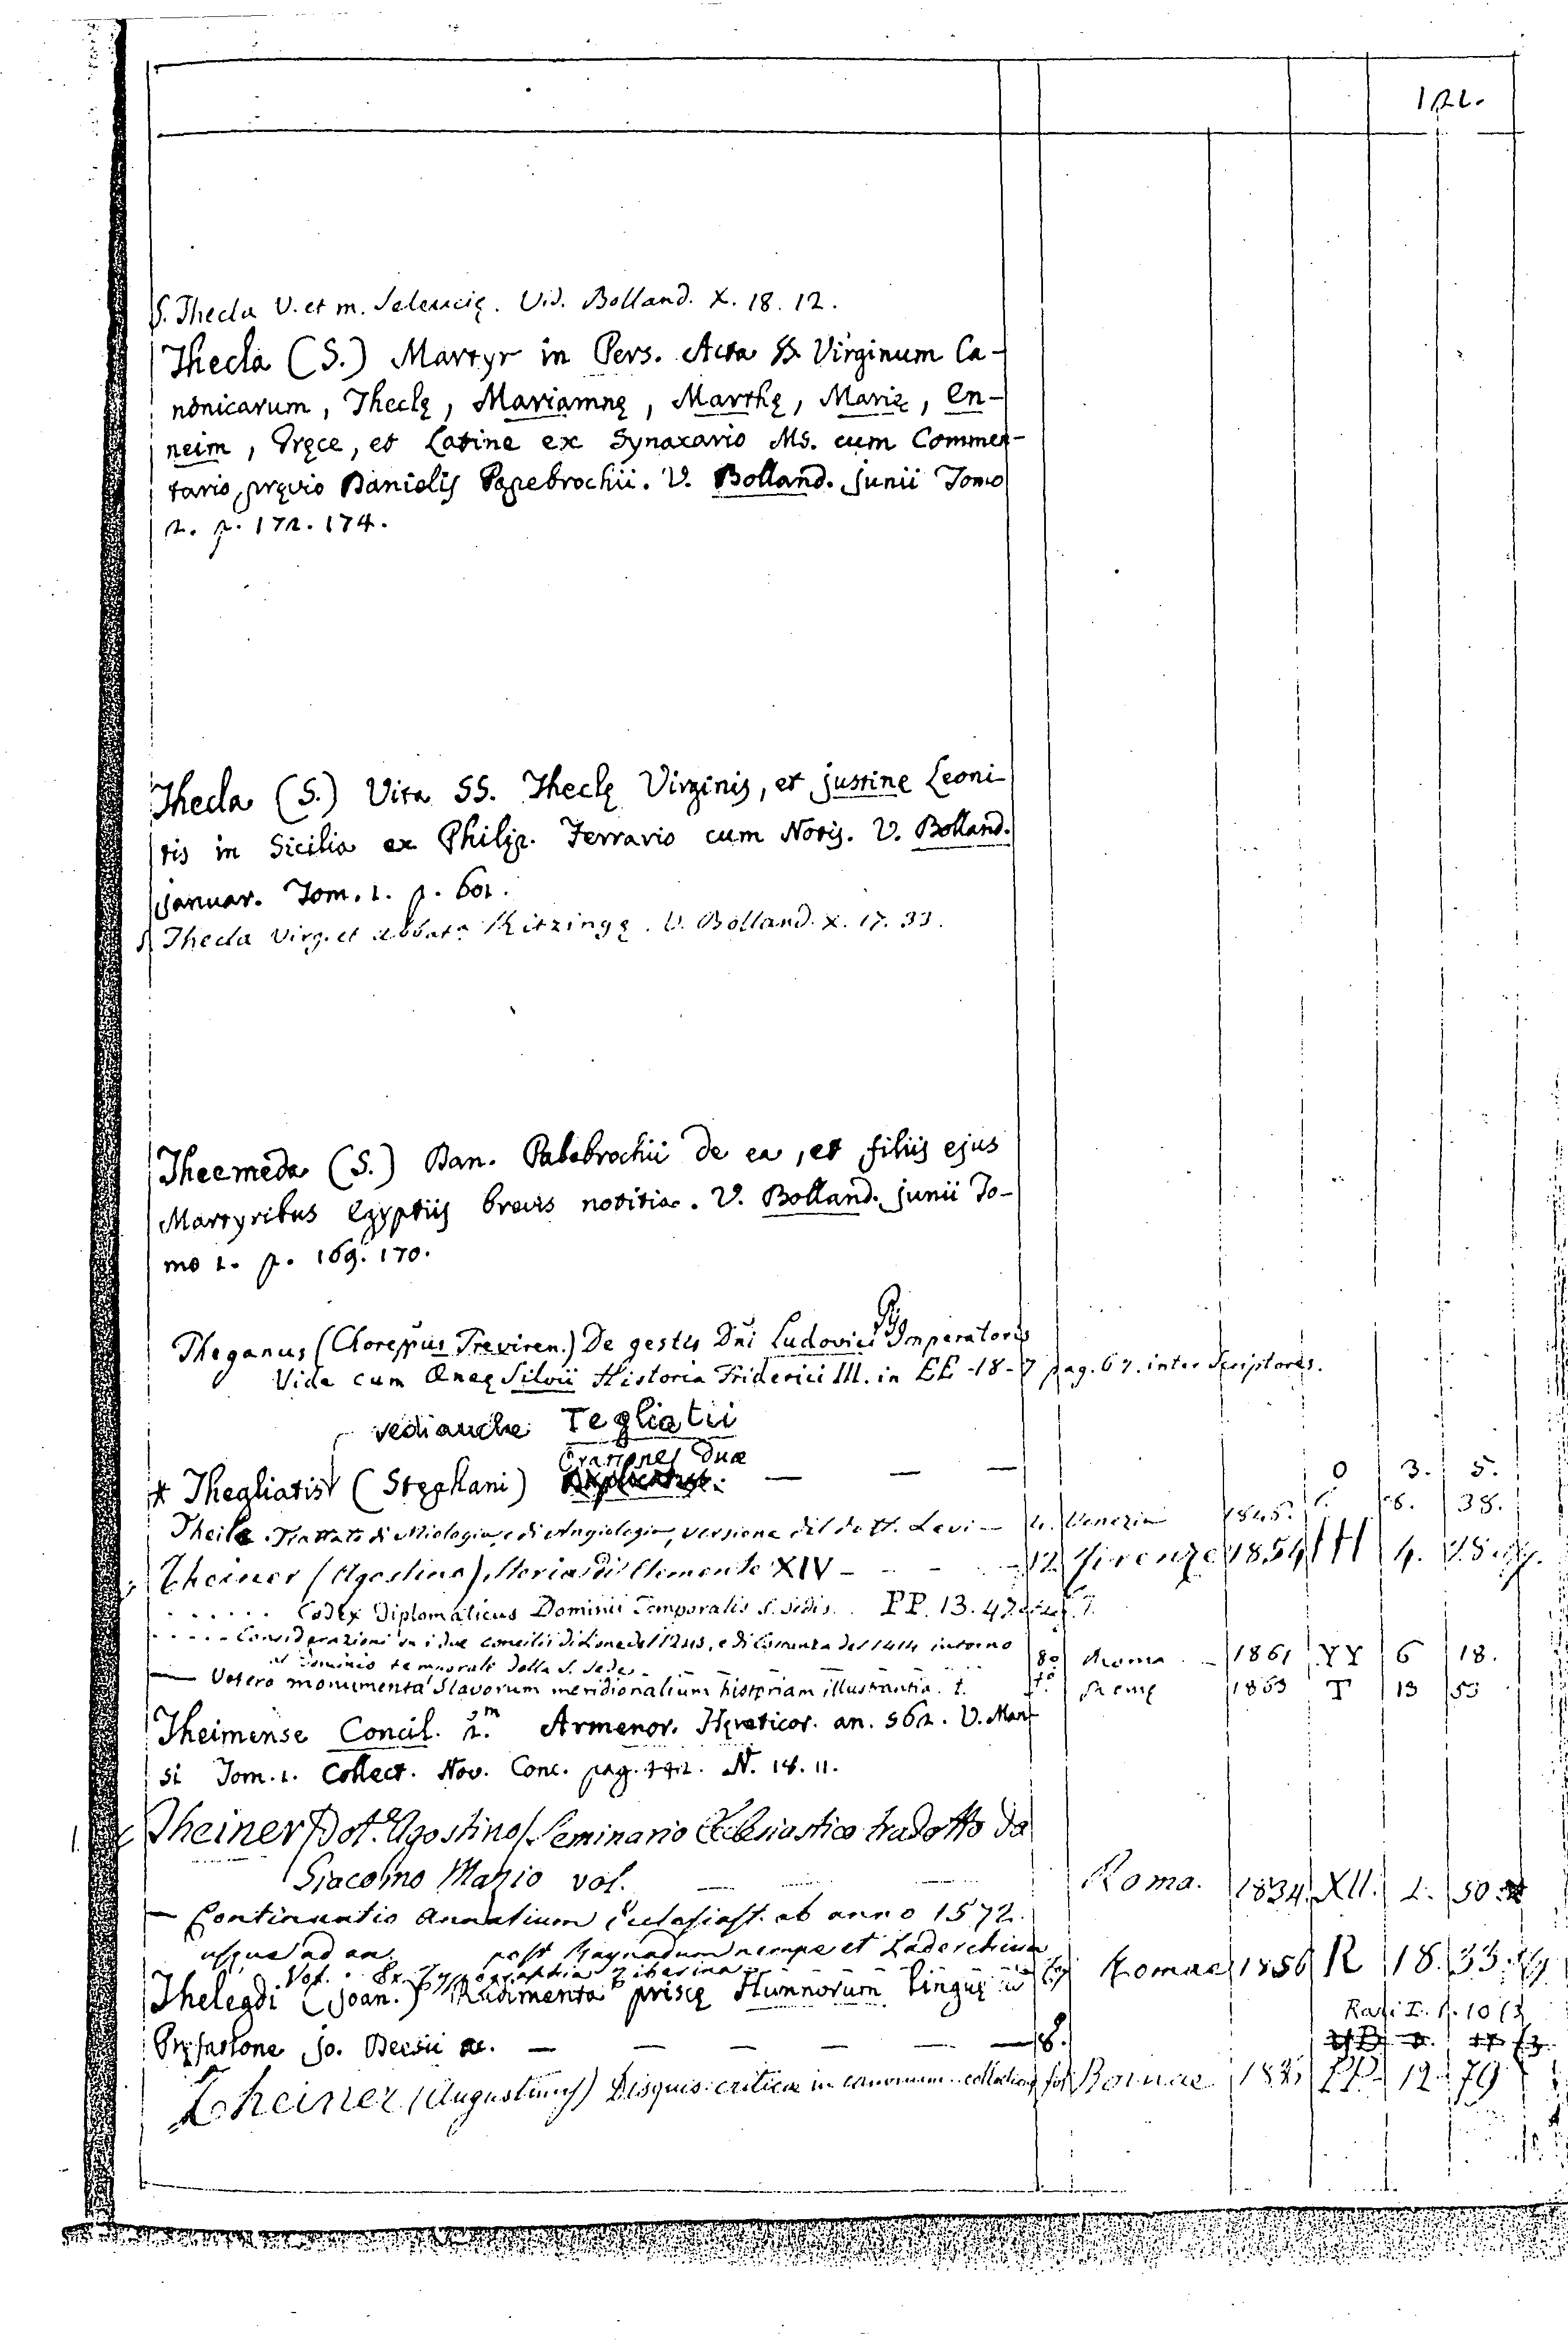 122.
S. Thecla V. et m. Seleucię. Vid. Bolland. X. 18. 12.
Thecla (S.) Martyr in Pers. Acta SS. Virginum Ca-
nonicarum, Theclę, Mariamnę, Marthę, Marię, En-
neim, Gręce, et Latine ex Synaxario Ms. cum Commen-
tario pręvio Danielis Papebrochii. V. Bolland. Junii Tomo
2. p. 172. 174.
Thecla (S.) Vita SS. Theclę Virginis, et Justine Leoni
tis in Sicilia ex Philip. Ferrario cum Notis. V. Bolland.
Januar. Tom. 1. p. 601.
S. Thecla Virg. et abbat. Kitzingę. V. Bolland. X. 17. 33.
Theemeda (S.) Dan. Pabebrochii de ea, et filiis ejus
Martyribus Egyptiis brevis notitia. V. Bolland. Junii To-
mo 1. p. 169. 170.
Theganus (Choreppus Treviren.) De gestis Dni Ludovici Pij Imperatoris
Vide cum Æneę Silvii Historia Friderici III. in EE-18-7 pag. 67. inter Scriptores.
vedi anche Tegliatii
Orationes Duæ
* Thegliatis (Stephani) — — — O 3. 5.
Theile. Trattato di Miologia, e di Angiologia, versione del dott. Levi — 4. Venezia 1845. 6. 38.
Theiner (Agostino) Storia di Clemente XIV — 12 Firenze 1854 H 4.
...... Codex Diplomaticus Dominii Temporalis S. Sedis. PP. 13. 47
..... Considerazioni su i due concilii di Lione del 1245, e di Costanza del 1414 intorno
al dominio temporale della S. Sede — 8o Roma — 1861 YY 6 18.
— Vetera monumenta Slavorum meridionalium historiam illustrantia. t. fo. Romę 1863 T 13 53
Theimense Concil. 2.m Armenor. Hęreticor. an. 562. V. Man
si Tom. 1. Collect. Nov. Conc. pag. N. 14. 11.
Theiner Dot.e Agostino / Seminario Ecclesiastico tradotto da
Giacomo Mazio vol. — Roma. 1834. XII. 2. 50.
— Continuatio Annalium Ecclesiast. ab anno 1572.
usque ad an. post Raynaldum nempe et Laderchium
Vol. . Ex Typographia Tiberina Romae 1856 R 18. 33.
Thelegdi (Joan.) Rudimenta priscę Hunnorum linguę
Rari I. 1. 10
Pręfatione Jo. Decsii &c. — — — — — 8.
Theiner (Augustinus) Disquis. criticae in canonum collationes fol Romae PP. 12 79